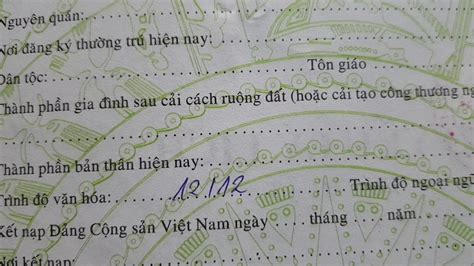 Nguyên quán:
Nơi đăng ký thường trú hiện nay:
Dân tộc: Tôn giáo
Thành phần gia đình sau cải cách ruộng đất (hoặc cải tạo công thương ng
Thành phần bản thân hiện nay:
Trình độ văn hóa: 12/12 Trình độ ngoại ngữ
Kết nạp Đảng Cộng sản Việt Nam ngày tháng năm
Nơi kết nạp: